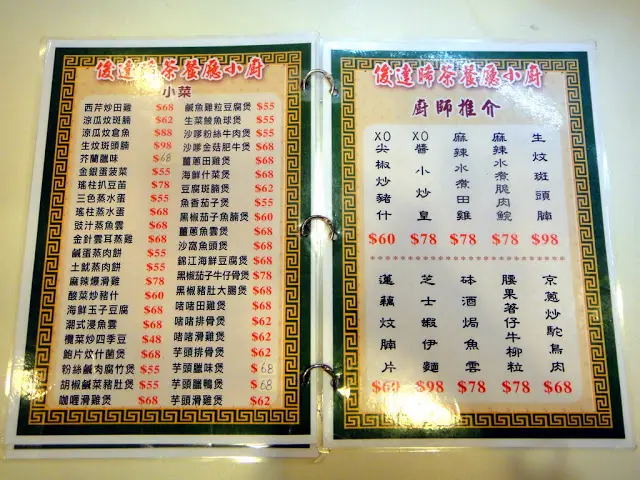 俊達師茶餐廳小廚
小菜
西芹炒田雞 $68
涼瓜炆斑腩 $62
涼瓜炆倉魚 $88
生炆斑頭腩 $98
芥蘭臘味 $68
金銀蛋菠菜 $55
瑤柱扒豆苗 $78
三色蒸水蛋 $55
瑤柱蒸水蛋 $68
豉汁蒸魚雲 $68
金針雲耳蒸雞 $68
鹹蛋蒸肉餅 $55
土魷蒸肉餅 $55
麻辣爆滑雞 $78
酸菜炒豬什 $60
海鮮玉子豆腐 $68
潮式浸魚雲 $68
欖菜炒四季豆 $48
鮑片炆什菌煲 $68
粉絲鹹肉腐竹煲 $55
胡椒鹹菜豬肚煲 $55
咖喱滑雞煲 $68
鹹魚雞粒豆腐煲 $55
生菜鯪魚球煲 $55
沙嗲粉絲牛肉煲 $55
沙嗲金菇肥牛煲 $68
薑蔥田雞煲 $68
海鮮什菜煲 $68
豆腐斑腩煲 $62
魚香茄子煲 $55
黑椒茄子魚腩煲 $60
薑蔥魚雲煲 $68
沙窩魚頭煲 $68
錦江海鮮豆腐煲 $68
黑椒茄子牛仔骨煲 $78
黑椒豬肚大腸煲 $68
啫啫田雞煲 $68
啫啫排骨煲 $62
啫啫滑雞煲 $62
芋頭排骨煲 $62
芋頭臘味煲 $68
芋頭臘鴨煲 $68
芋頭滑雞煲 $62
俊達師茶餐廳小廚
廚師推介
XO尖椒炒豬什 $60
XO醬小炒皇 $78
麻辣水煮田雞 $78
麻辣水煮脆肉鯇 $78
生炆斑頭腩 $98
蓮藕炆腩片 $60
芝士蝦伊麵 $98
砵酒焗魚雲 $78
腰果薯仔牛柳粒 $78
京蔥炒鴕鳥肉 $68